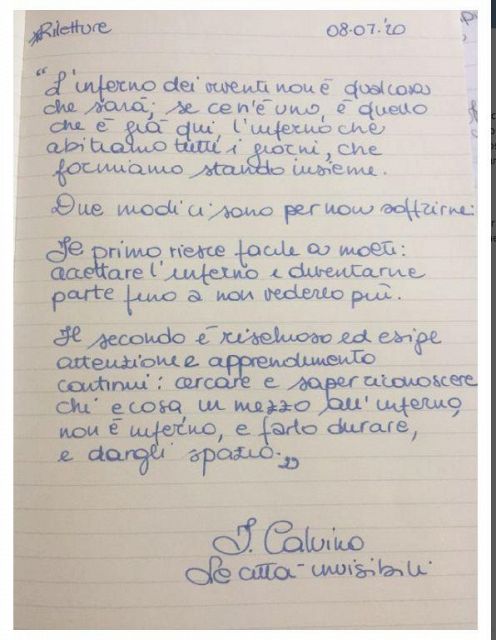 *Riletture 08-07-'20
"L'inferno dei viventi non è qualcosa
che sarà; se ce n'è uno, è quello
che è già qui, l'inferno che
abitiamo tutti i giorni, che
formiamo stando insieme.
Due modi ci sono per non soffrirne:
Il primo riesce facile a molti:
accettare l'inferno e diventarne
parte fino a non vederlo più.
Il secondo è rischioso ed esige
attenzione e apprendimento
continui: cercare e saper riconoscere
chi e cosa in mezzo all'inferno,
non è inferno, e farlo durare,
e dargli spazio."
I. Calvino
Le città invisibili